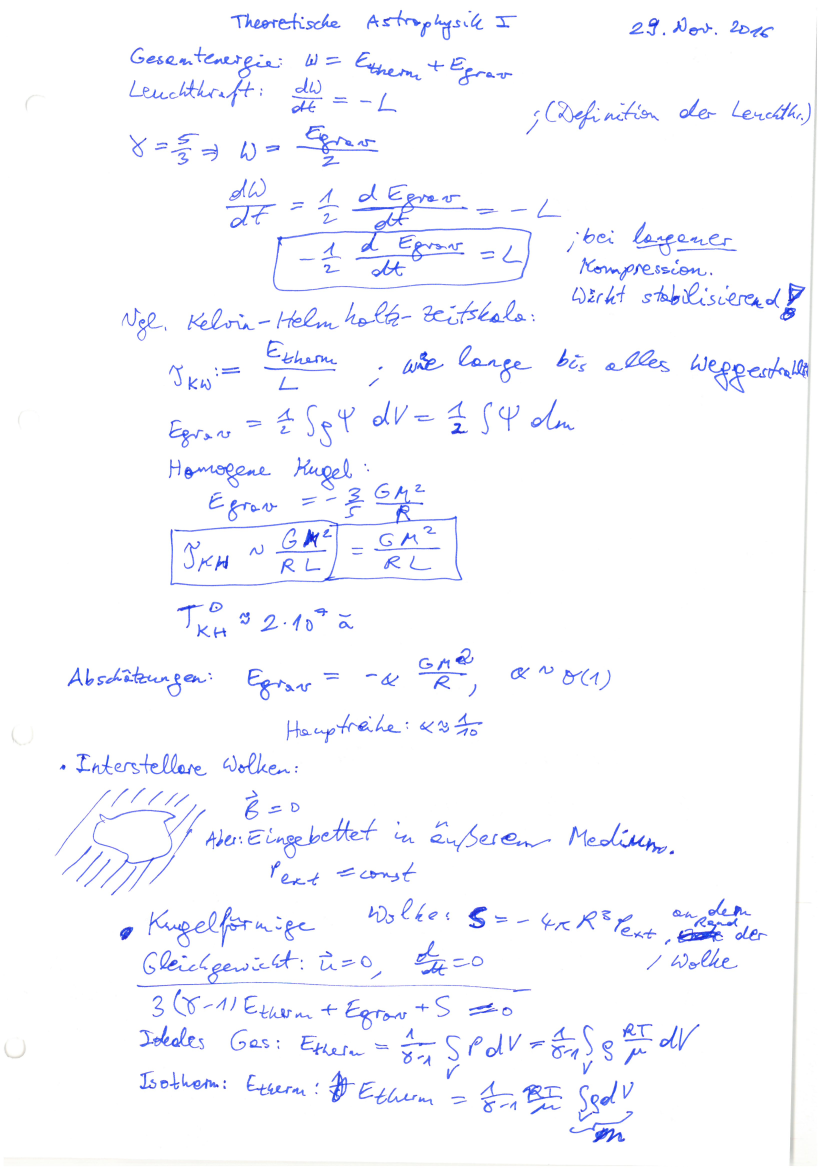 Theoretische Astrophysik I 29. Nov. 2016
Gesamtenergie: W = E_therm + E_grav
Leuchtkraft: dW/dt = -L ; (Definition der Leuchtkr.)
γ = 5/3 ⇒ W = E_grav/2
dW/dt = 1/2 d E_grav/dt = -L
-1/2 d E_grav/dt = L ; bei langsamer
Kompression.
Wirkt stabilisierend!
Vgl. Kelvin-Helmholtz-Zeitskala:
τ_KW := E_therm/L ; wie lange bis alles Weggestrahlt
E_grav = 1/2 ∫ρΨ dV = 1/2 ∫Ψ dm
Homogene Kugel:
E_grav = -3/5 GM²/R
τ_KH ~ GM²/RL = GM²/RL
T_KH^⊙ ≈ 2·10⁷ a
Abschätzungen: E_grav = -α GM²/R, α ~ O(1)
Hauptreihe: α ≈ 1/10
• Interstellare Wolken:
B⃗ = 0
Aber: Eingebettet in äußerem Medium.
P_ext = const
• Kugelförmige Wolke: S = -4πR³P_ext, an dem Rand der Wolke
Gleichgewicht: u⃗ = 0, d/dt = 0
3(γ-1)E_therm + E_grav + S = 0
Ideales Gas: E_therm = 1/(γ-1) ∫_V P dV = 1/(γ-1) ∫_V ρ RT/μ dV
Isotherm: E_therm: E_therm = 1/(γ-1) RT/μ ∫ρdV
m